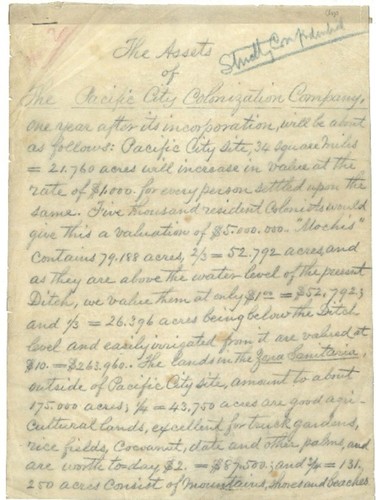 Strictly Confidential
The Assets
of
The Pacific City Colonization Company,
one year after its incorporation, will be about
as follows: Pacific City site, 34 square miles
= 21.760 acres will increase in value at the
rate of $1.000. for every person settled upon the
same. Five thousand resident Colonists would
give this a valuation of $5.000.000. "Mochis"
contains 79.188 acres; 2/3 = 52.792 acres and
as they are above the water level of the present
Ditch, we value them at only $1.00 = $52,792;
and 1/3 = 26.396 acres being below the Ditch
level and easily irrigated from it are valued at
$10. = $263,960.. The lands in the Zona Sanitaria,
outside of Pacific City site, amount to about
175.000 acres; 1/4 = 43,750 acres are good agri-
cultural lands, excellent for truck gardens,
rice fields, Cocoanut, date and other palms, and
are worth to-day $2. = $87,500; and 3/4 = 131,
250 acres consist of Mountains, shores and beaches